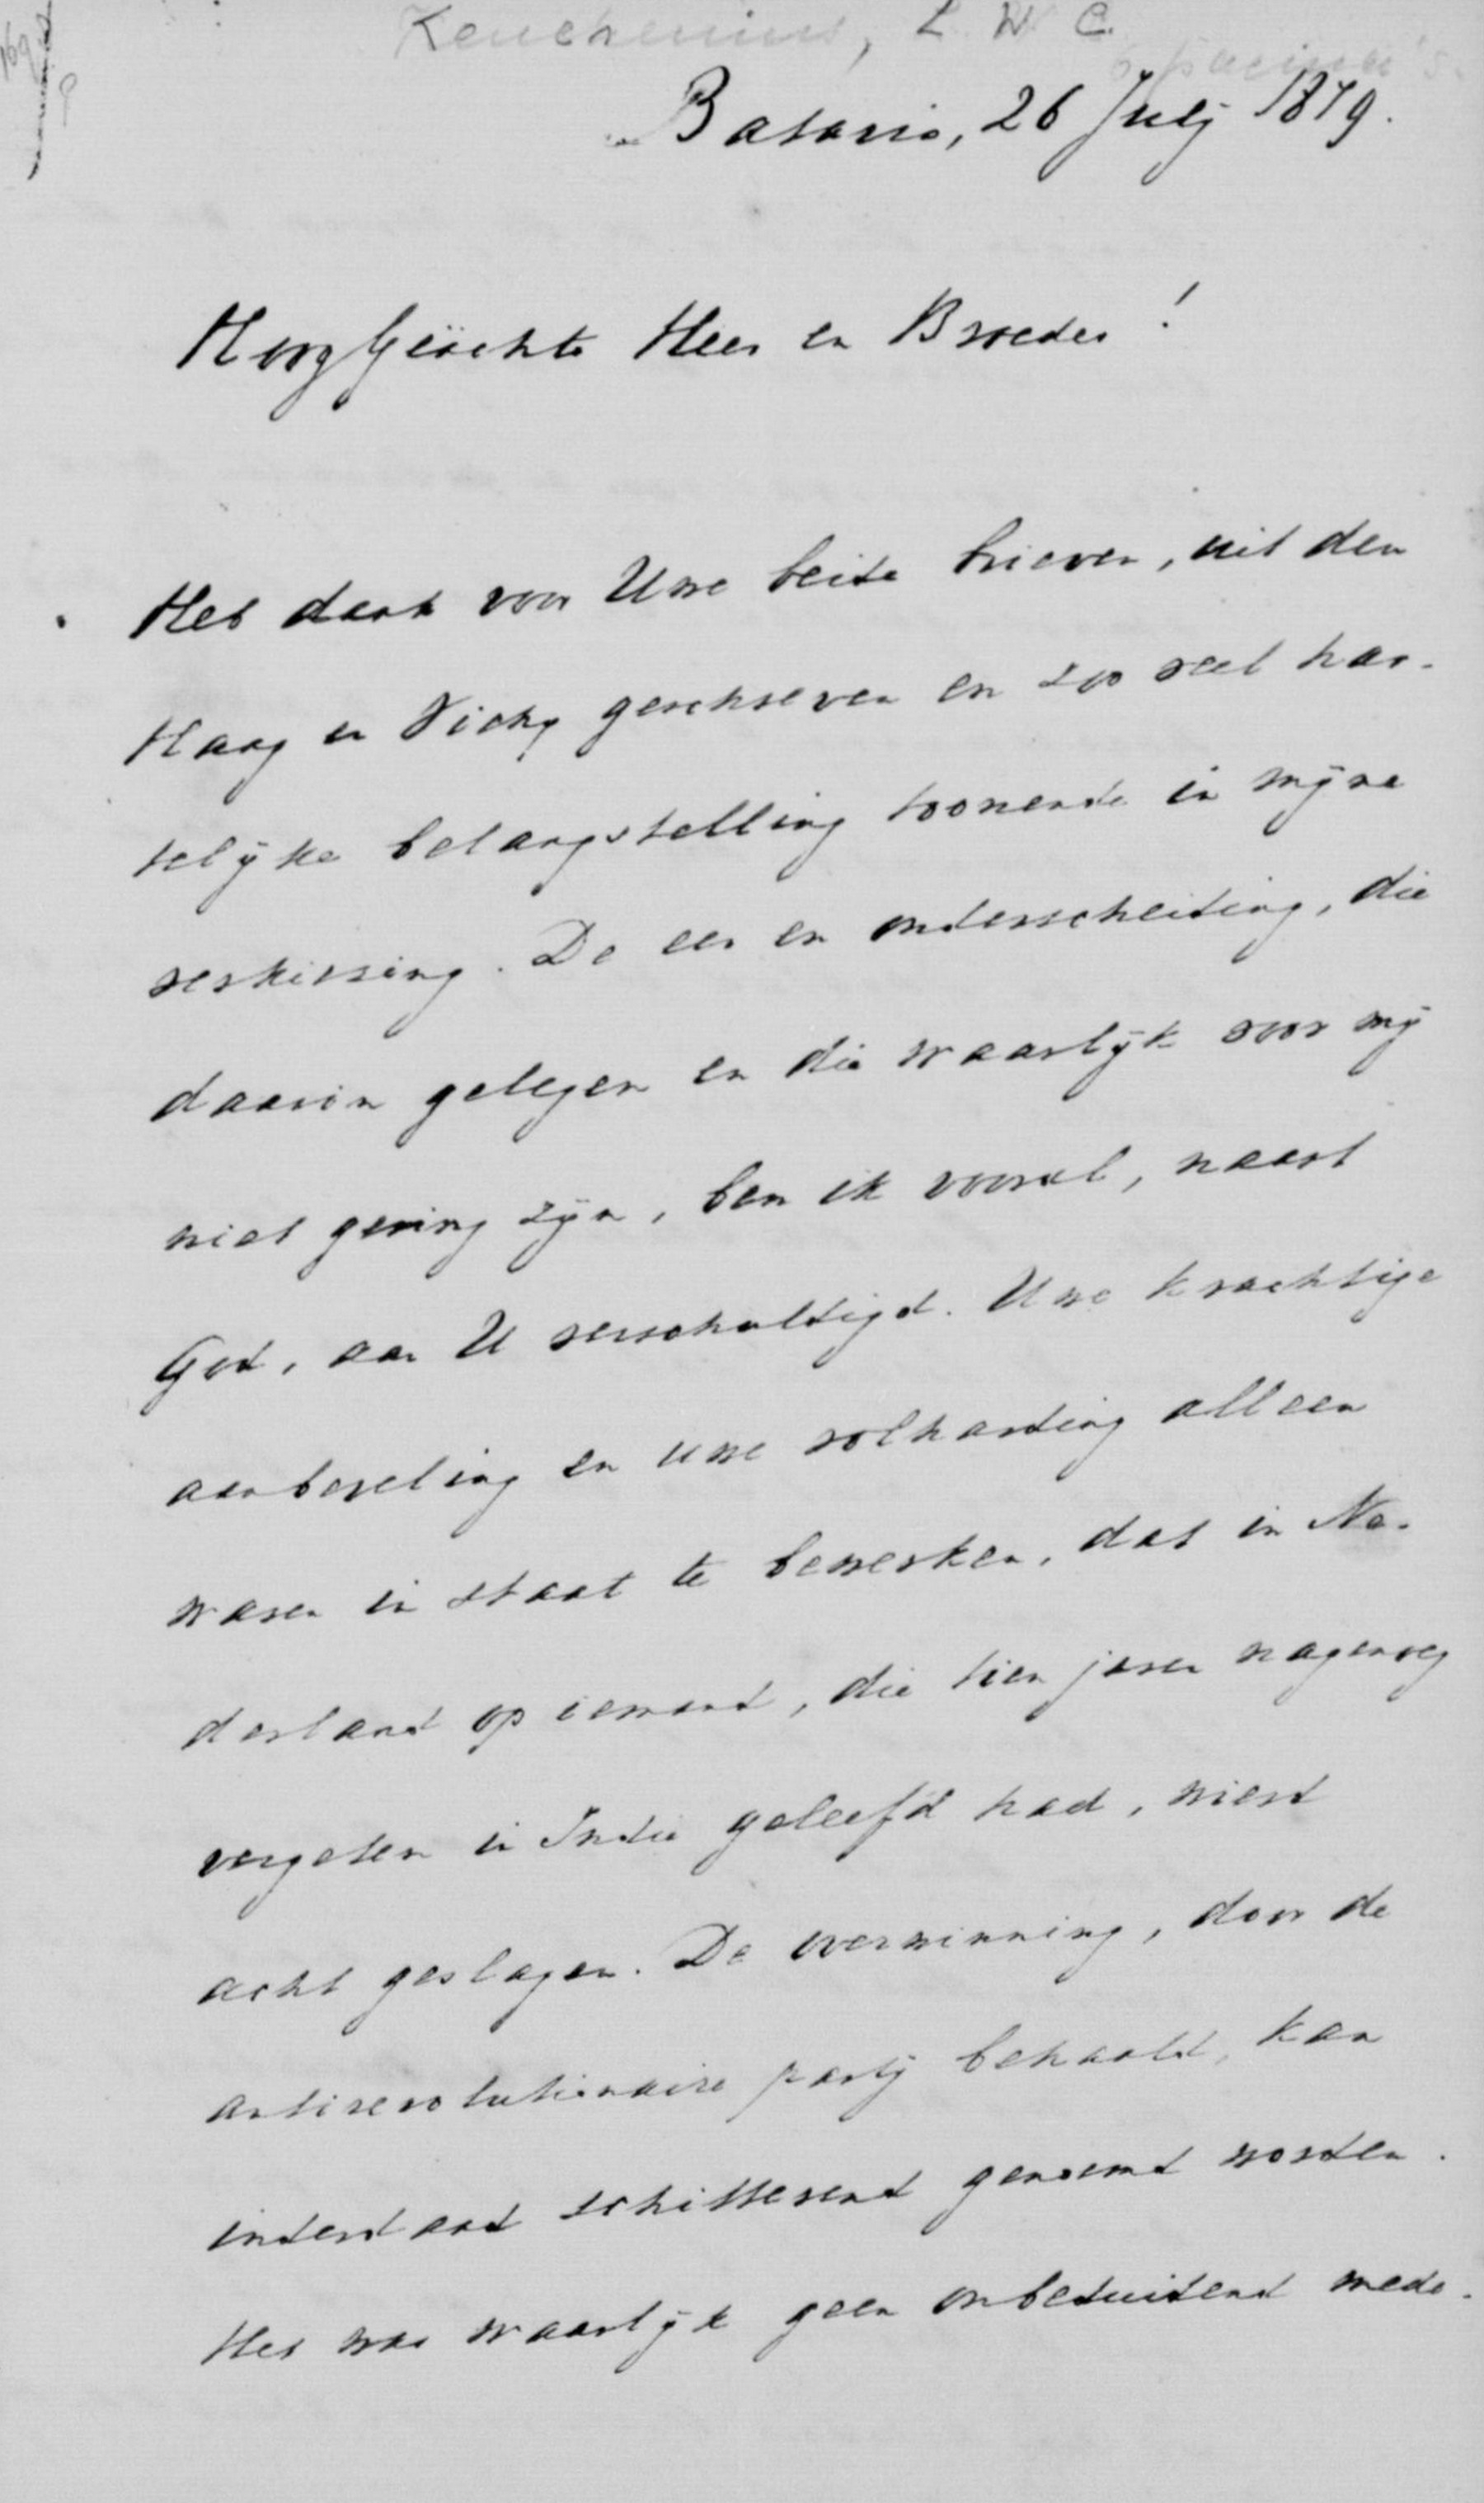 Keuchenius, L. W. C.
6 pagina's.
Batavia, 26 Julij 1879.
HoogGeächte Heer en Broeder!
Heb dank voor Uwe beide brieven, uit den
Haag en Vichy geschreven en zoo veel har-
telijke belangstelling toonende in mijne
verkiezing. De eer en onderscheiding, die
daarin gelegen en die waarlijk voor mij
niet gering zijn, ben ik vooral, naast
God, aan U verschuldigd. Uwe krachtige
aanbeveling en uwe volharding alleen
waren in staat te bewerken, dat in Ne-
derland op iemand, die tien jaren nagenoeg
vergeten in Indie geleefd had, wierd
acht geslagen. De overwinning, door de
antirevolutionaire partij behaald, kan
inderdaad schitterend genoemd worden.
Het was waarlijk geen onbeduidend mede-